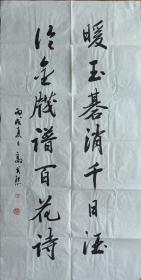 暖玉棊消千日酒
泠金牋谱百花诗
丙戌夏日高式熊